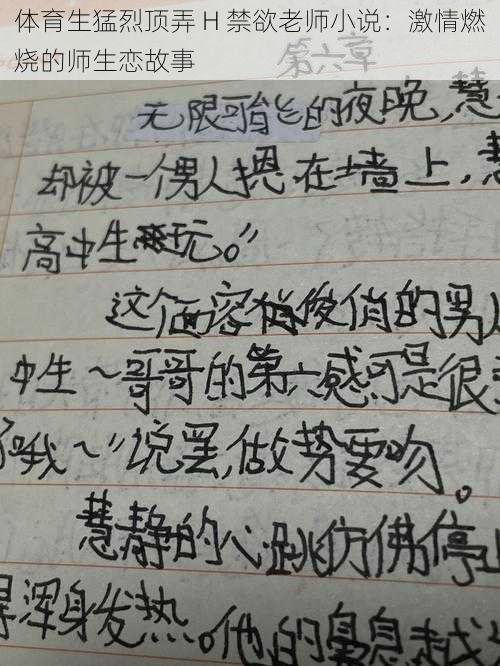 体育生猛烈顶弄 H 禁欲老师小说：激情燃
烧的师生恋故事
第六章
无限可能的夜晚，慧
却被一个男人摁在墙上，
高中生玩。”
这个面容俊俏的男人
中生～哥哥的第六感可是很
哦～”说罢，做势要吻。
慧静的心跳仿佛停止
得浑身发热。他的鼻息越